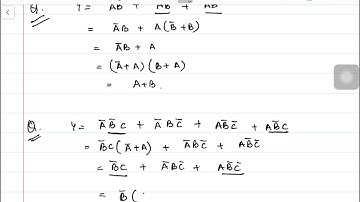 Q. Y = ĀB + AB̄ + AB
= ĀB + A(B̄+B)
= ĀB + A
= (Ā+A)(B+A)
= A+B.
Q. Y = ĀB̄C + ĀB̄C̄ + AB̄C̄ + AB̄C
= B̄C(Ā+A) + ĀB̄C̄ + AB̄C̄
= B̄C + ĀB̄C̄ + AB̄C̄
= B̄(